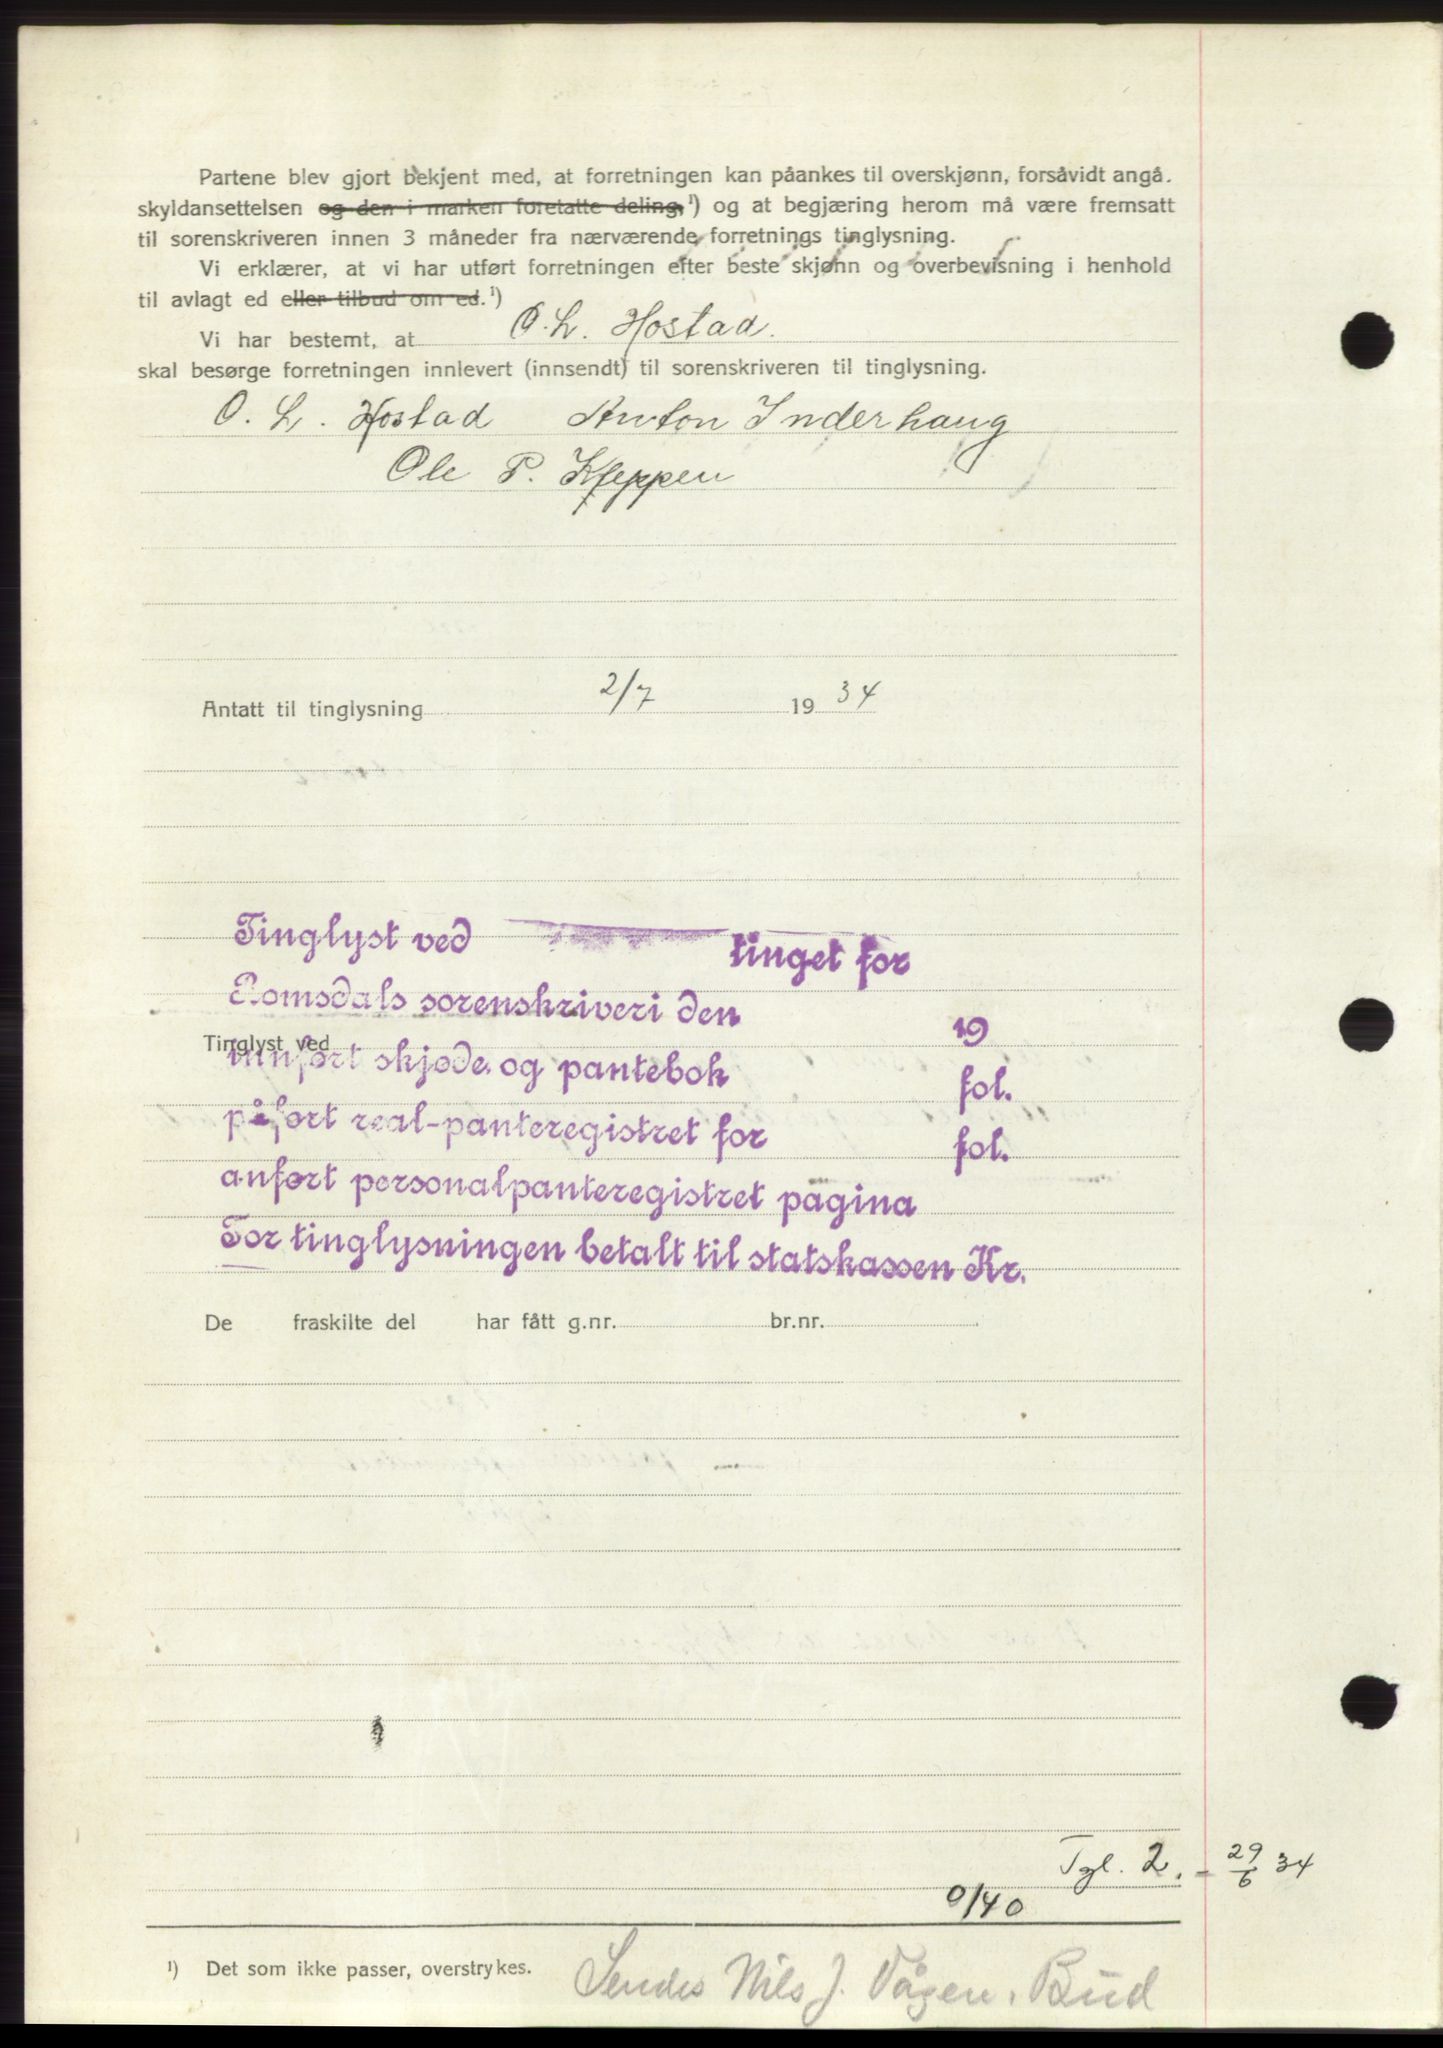 Partene blev gjort bekjent med, at forretningen kan påankes til overskjønn, forsåvidt angå.
skyldansettelsen og den i marken foretatte deling,¹) og at begjæring herom må være fremsatt
til sorenskriveren innen 3 måneder fra nærværende forretnings tinglysning.
Vi erklærer, at vi har utført forretningen efter beste skjønn og overbevisning i henhold
til avlagt ed eller tilbud om ed.¹)
Vi har bestemt, at O. L. Hostad.
skal besørge forretningen innlevert (innsendt) til sorenskriveren til tinglysning.
O. L. Hostad Anton Inderhaug
Ole P. Kleppen
Antatt til tinglysning 2/7 19 34
Tinglyst ved tinget for
Romsdals sorenskriveri den 19
Tinglyst ved
innført skjøde og pantebok fol.
påført real-panteregistret for fol.
anført personalpanteregistret pagina
For tinglysningen betalt til statskassen Kr.
De fraskilte del har fått g.nr. br.nr.
Tgl. 2. - 29/6 34
0/40
¹) Det som ikke passer, overstrykes.
Sendes Nils J. Vågen, Bud